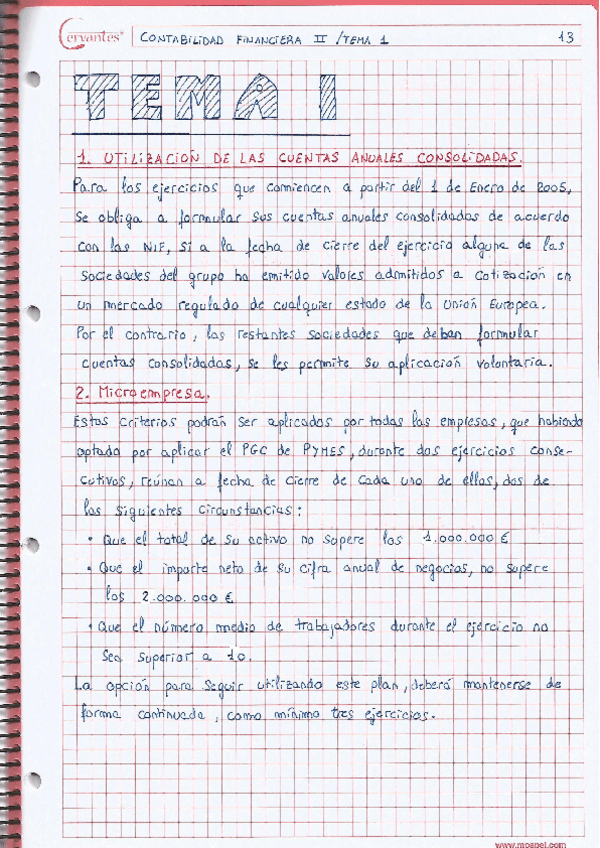 Cervantes® CONTABILIDAD FINANCIERA II / TEMA 1 13
TEMA I
1. UTILIZACIÓN DE LAS CUENTAS ANUALES CONSOLIDADAS.
Para los ejercicios que comiencen a partir del 1 de Enero de 2005,
se obliga a formular sus cuentas anuales consolidadas de acuerdo
con las NIF, si a la fecha de cierre del ejercicio alguna de las
sociedades del grupo ha emitido valores admitidos a cotización en
un mercado regulado de cualquier estado de la Unión Europea.
Por el contrario, las restantes sociedades que deban formular
cuentas consolidadas, se les permite su aplicación voluntaria.
2. Microempresa.
Estos criterios podrán ser aplicados por todas las empresas, que habiendo
optado por aplicar el PGC de PYMES, durante dos ejercicios conse-
cutivos, reúnan a fecha de cierre de cada uno de ellos, dos de
las siguientes circunstancias:
• Que el total de su activo no supere los 1.000.000 €
• Que el importe neto de su cifra anual de negocios, no supere
los 2.000.000 €
• Que el número medio de trabajadores durante el ejercicio no
sea superior a 10.
La opción para seguir utilizando este plan, deberá mantenerse de
forma continuada, como mínimo tres ejercicios.
www.mospel.com